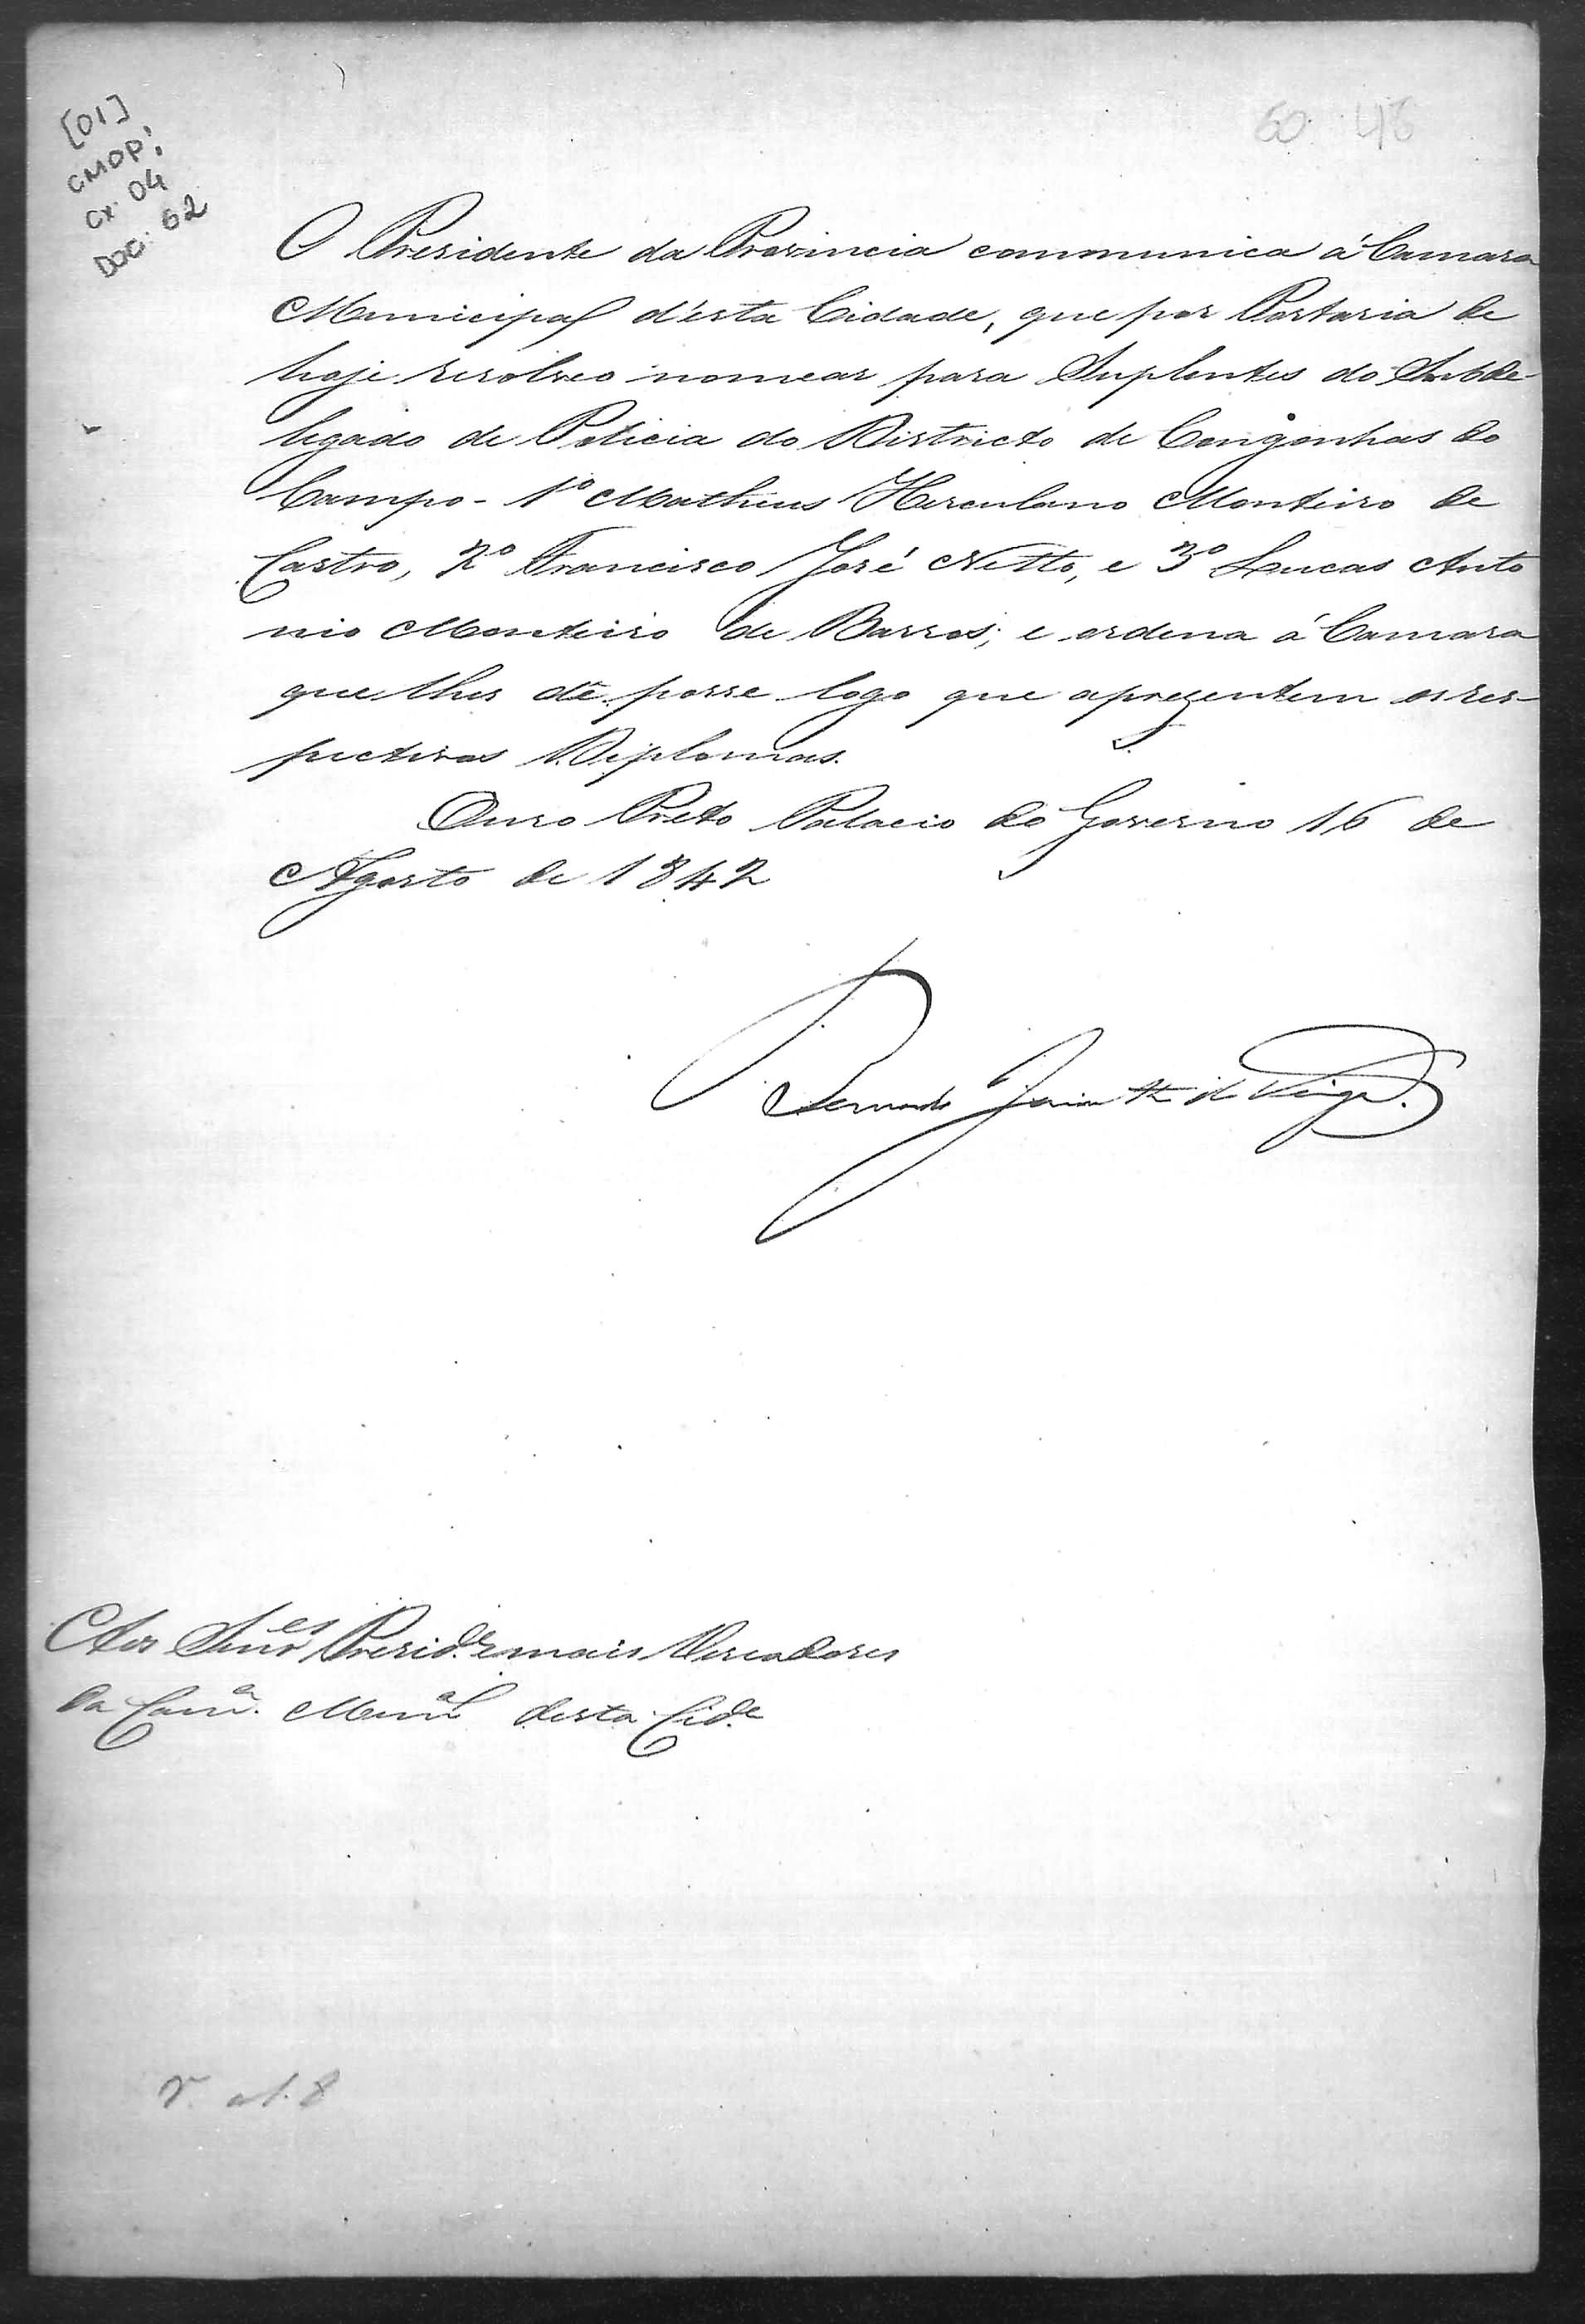 [01]
CMOP:
CX: 04
DOC: 62
60 46
O Presidente da Provincia communica á Camara
Municipal d'esta Cidade, que por Portaria de
hoje resolveo nomear para Suplentes do Subde-
legado de Policia do Districto de Congonhas do
Campo - 1º Matheus Herculano Monteiro de
Castro, 2º Francisco José Netto, e 3º Lucas Anto
nio Monteiro de Barros; e ordena á Camara
que lhes dê posse logo que aprezentem os res-
pectivos Diplomas.
Ouro Preto Palacio do Governo 16 de
Agosto de 1842
Bernardo Jacintho da Veiga.
Aos Senr.es Presid.e e mais Vereadores
da Cam.a Mun.al desta Cid.e